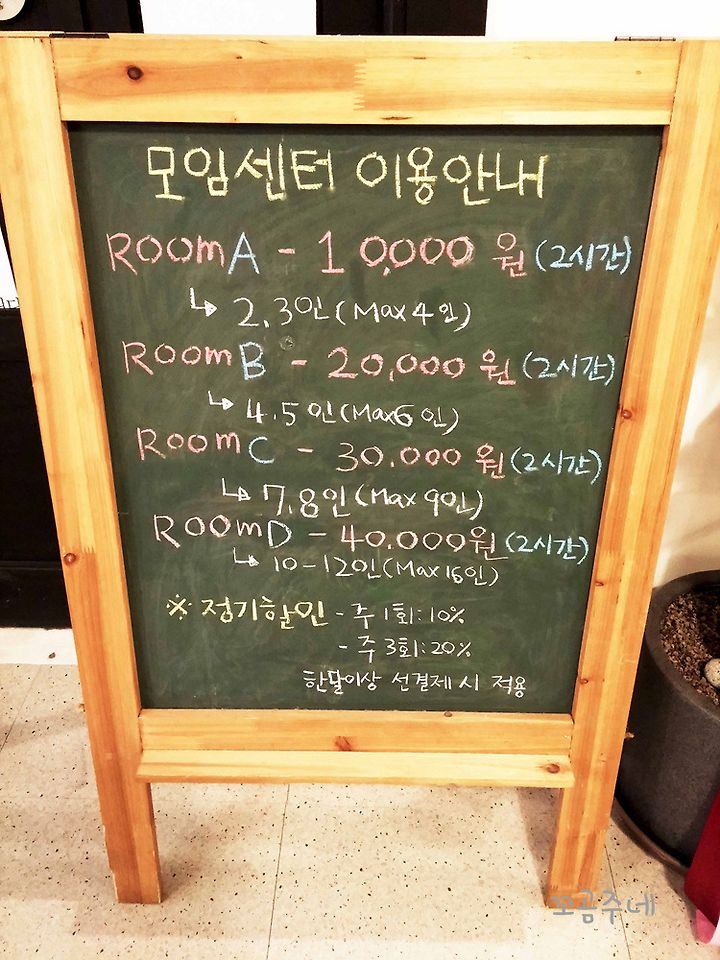 모임센터 이용안내
ROOM A - 10,000 원 (2시간)
↳ 2.3인 (Max 4인)
ROOM B - 20,000 원 (2시간)
↳ 4.5인 (Max 6인)
ROOM C - 30.000 원 (2시간)
↳ 7.8인 (Max 9인)
ROOM D - 40.000원 (2시간)
↳ 10-12인 (Max 16인)
※ 정기할인 - 주 1회:10%
- 주 3회:20%
한달이상 선결제 시 적용
꼬곰주네